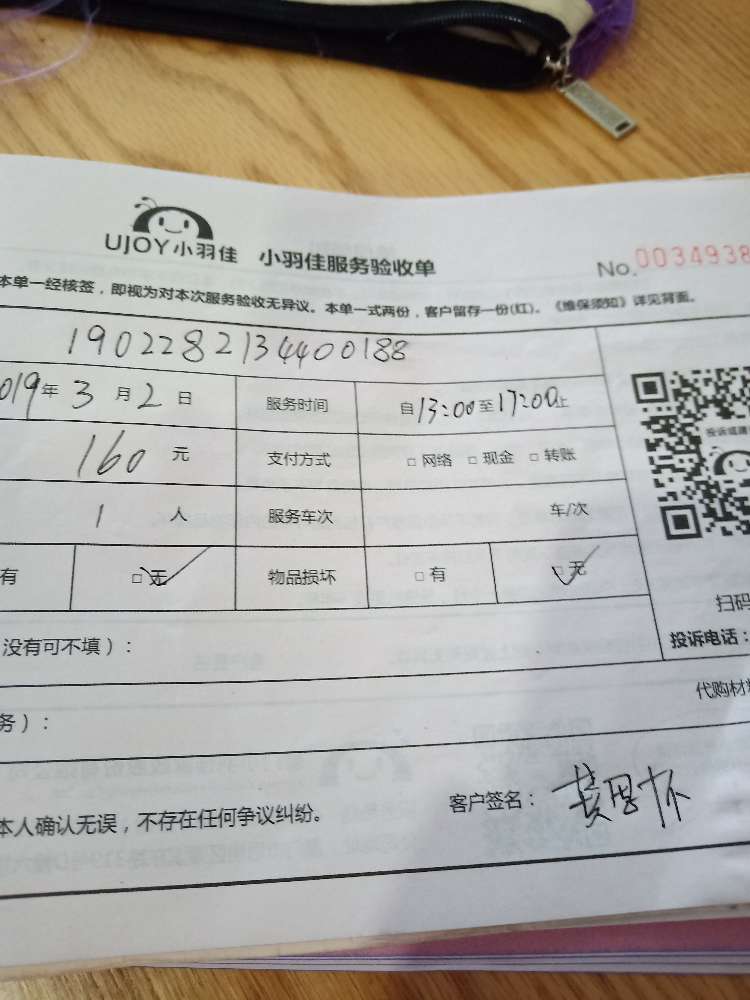 UJOY小羽佳 小羽佳服务验收单 No.0034938
本单一经核签，即视为对本次服务验收无异议。本单一式两份，客户留存一份(红)。《维保须知》详见背面。
1902282134400188
2019年3月2日 服务时间 自13:00至17:00止
160元 支付方式 □网络 □现金 □转账
1人 服务车次 车/次
有 □无 物品损坏 □有 □无
扫码
没有可不填）：
投诉电话：
代购材料
务）：
本人确认无误，不存在任何争议纠纷。 客户签名：